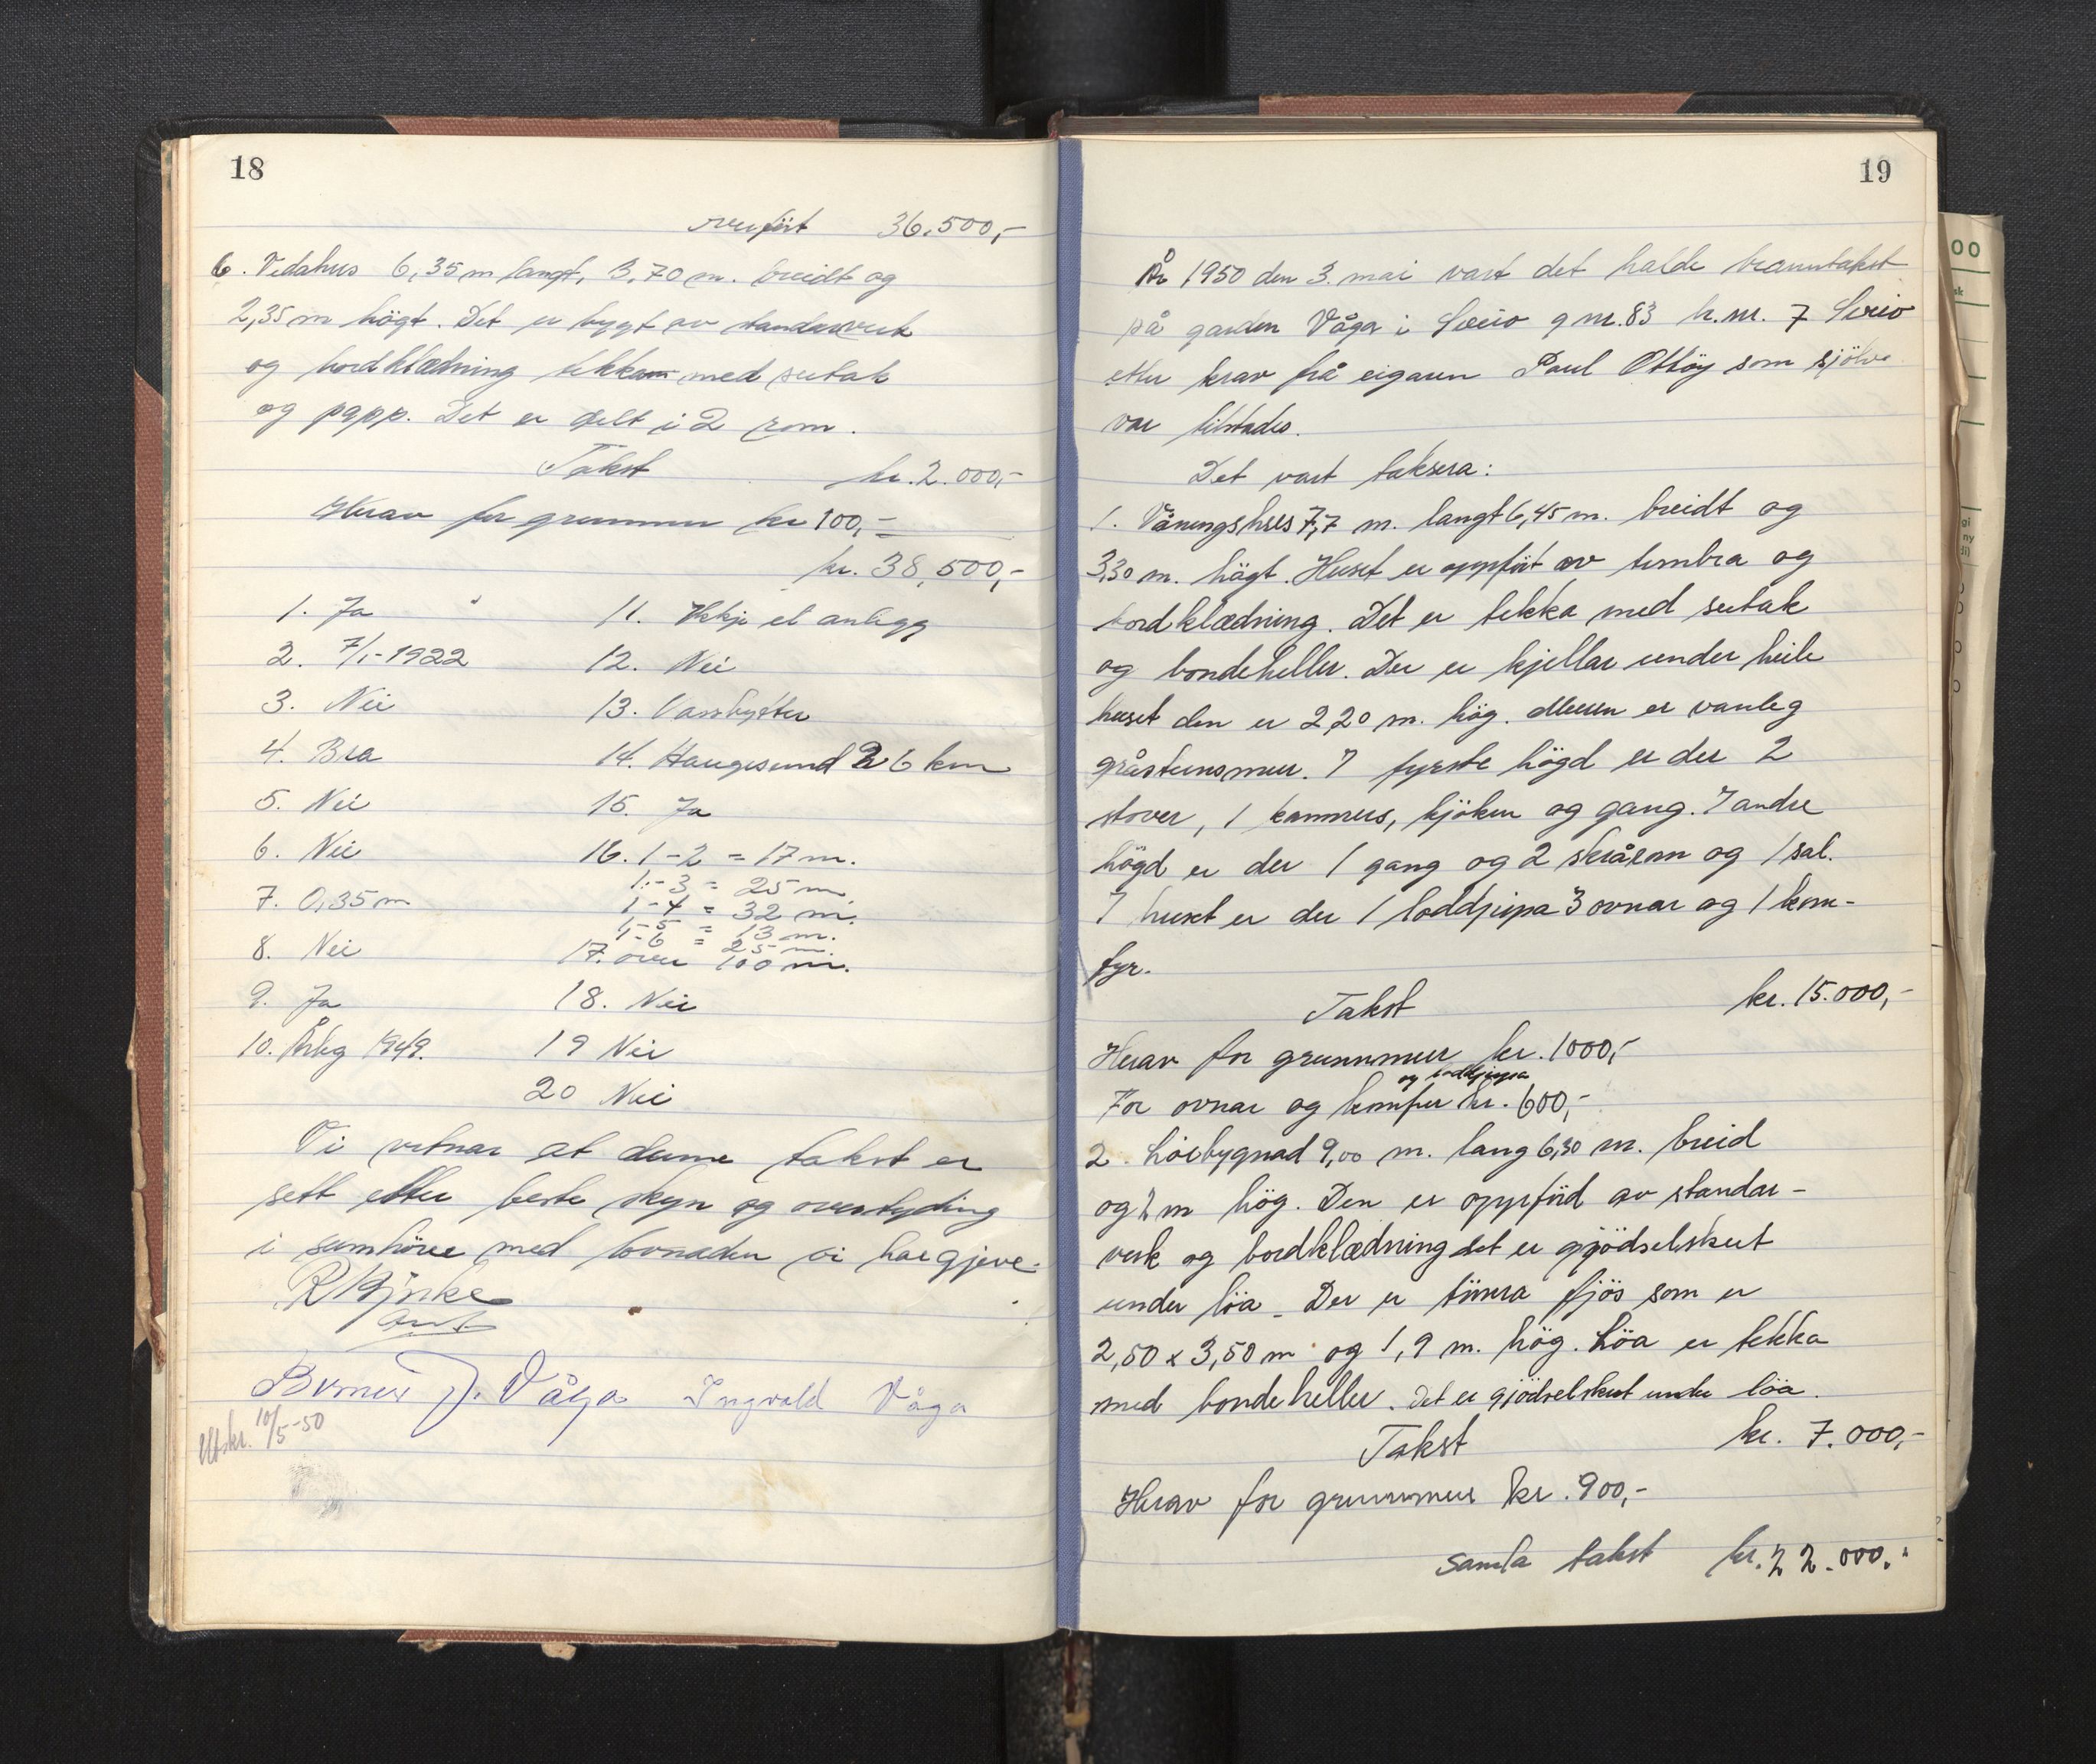 18
overfört 36.500,-
6. Vedahus 6,35 m langt, 3,70 m. breidt og
2,35 m högt. Det er bygt av standarverk
og bordklædning tekka med sutak
og papp. Det er delt i 2 rom.
Takst kr. 2.000,-
Herav for grunnmur kr 100,-
kr. 38,500,-
1. Ja
2. 7/1-1922
3. Nei
4. Bra
5. Nei
6. Nei
7. 0,35 m
8. Nei
9. Ja
10. Årleg 1949.
11. Ikkje el anlegg
12. Nei
13. Vassbytter
14. Haugesund 26 km
15. Ja
16. 1-2 = 17 m.
1-3 = 25 m.
1-4 = 32 m.
1-5 = 13 m.
1-6 = 25 m.
17. over 100 m.
18. Nei
19 Nei
20 Nei
Vi vitnar at denne takst er
sett etter beste skyn og overtyding
i samhöve med lovnaden vi har gjeve.
J. Våga Ingvald Våga
Utskr. 10/5-50
19
År 1950 den 3. mai vart det halde branntakst
på garden Våga i Sveio g nr. 83 br.nr. 7 Sveio
etter krav frå eigaren Poul Ottöy som sjölv
var tilstades.
Det vart taksera:
1. Våningshus 7,7 m. langt 6,45 m. breidt og
3,30 m. högt. Huset er oppfört av timbra og
bordklædning. Det er tekka med sutak
og bondeheller. Der er kjellar under heile
huset den er 2,20 m. hög. Muren er vanleg
gråsteinsmur. I fyrste högd er der 2
stover, 1 kammers, kjöken og gang. I andre
högd er der 1 gang og 2 skrårom og 1 sal.
I huset er der 1 loddpipa 3 ovnar og 1 kom-
fyr.
Takst kr. 15.000,-
Herav for grunnmur kr. 1000,-
og loddpipa
For ovnar og komfyr kr. 600,-
2. Löebygnad 9,00 m. lang 6,30 m. breid
og 3 m hög. Den er oppförd av standar-
verk og bordklædning det er gjödselskut
under löa. Der er timra fjös som er
2,50 x 3,50 m og 1,9 m. hög. Löa er tekka
med bondeheller. Det er gjödselskut under löa.
Takst kr. 7.000,-
Herav for grunnmur kr. 900,-
Samla takst kr. 22.000,-